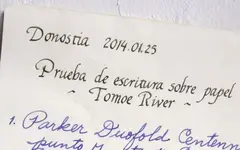 Donostia 2014.01.25
Prueba de escritura sobre papel
~ Tomoe River ~
1. Parker Duofold Centenn
punto